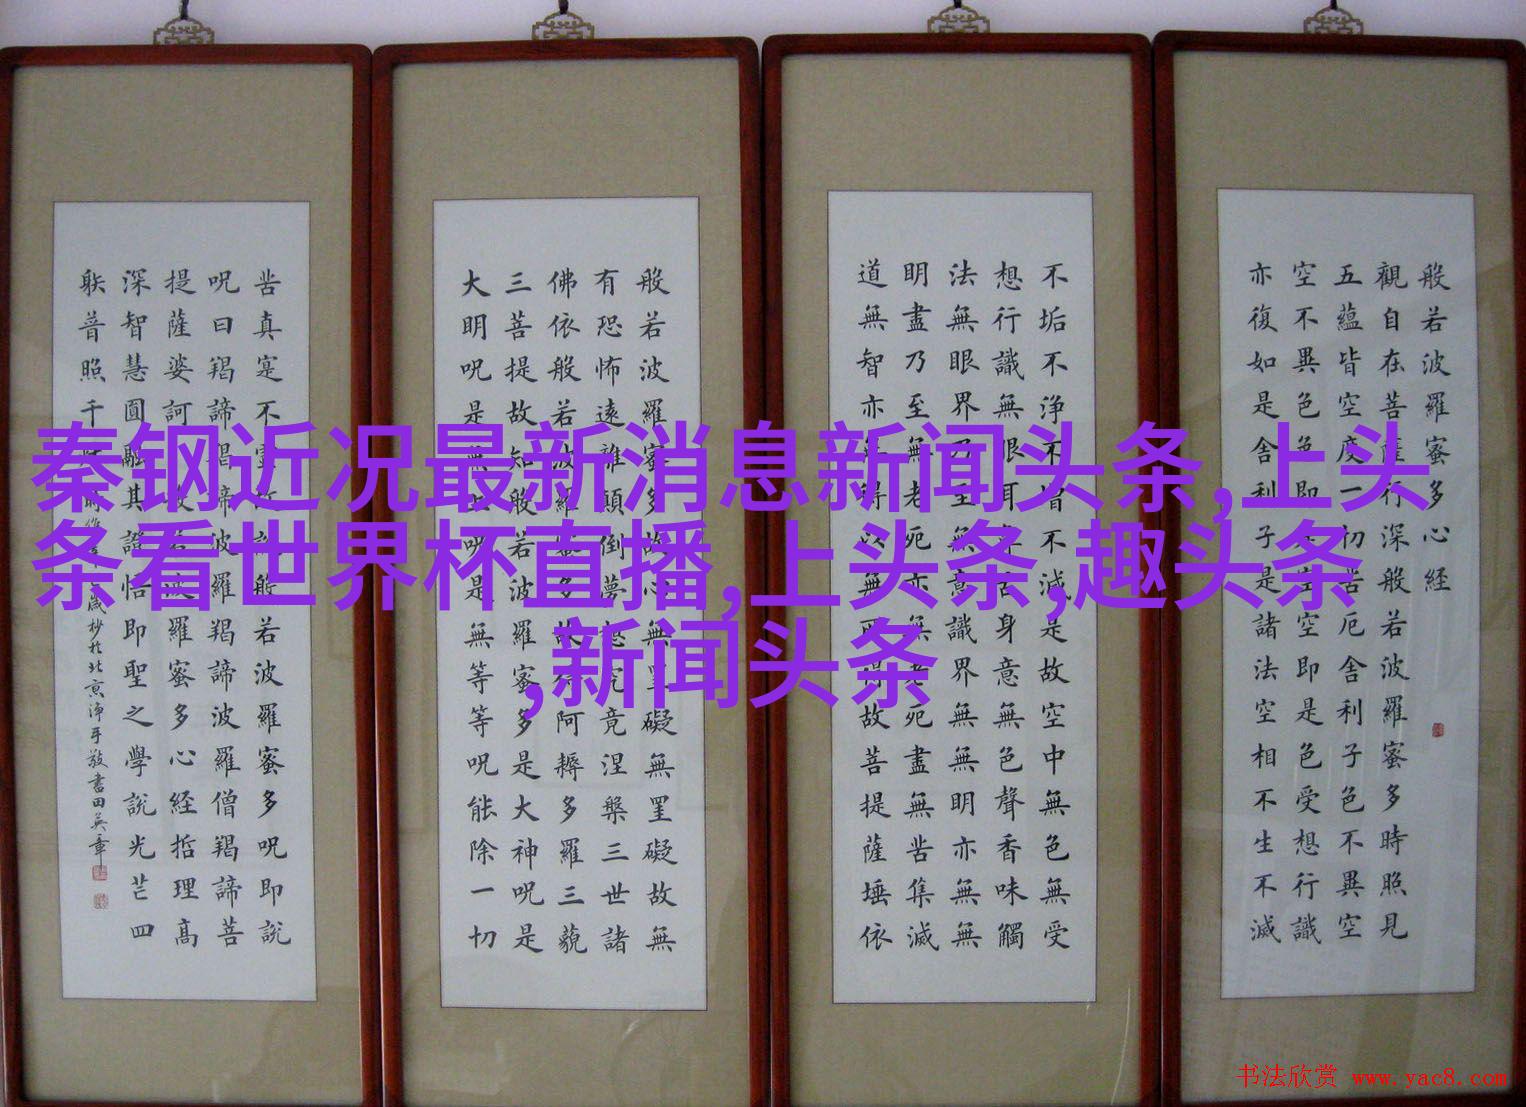 秦钢近况最新消息新闻头条,上头
条看世界杯直播,上头条,趣头条
,新闻头条
般若波羅蜜多心経
觀自在菩薩行深般若波羅蜜多時照見
五蘊皆空度一切苦厄舍利子色不異空
空不異色色即是空空即是色受想行識
亦復如是舍利子是諸法空相不生不滅
不垢不浄不增不减是故空中無色無受
想行識無眼耳鼻舌身意無色聲香味觸
法無眼界乃至無意識界無無明亦無無
明盡乃至無老死亦無老死盡無苦集滅
道無智亦無得以無所得故菩提薩埵依
般若波羅蜜多故心無罣礙無罣礙故無
有恐怖遠離顛倒夢想究竟涅槃三世諸
佛依般若波羅蜜多故得阿耨多羅三藐
三菩提故知般若波羅蜜多是大神呪是
大明呪是無上呪是無等等呪能除一切
苦真寔不虚故說般若波羅蜜多呪即説
呪曰羯諦羯諦波羅羯諦波羅僧羯諦菩
提薩婆訶般若波羅蜜多心経哲理高
深智慧圓融其證悟即聖之學說光芒四
躲普照千歲抄於北京淨手敬書田英章
书法欣赏 www.yac8.com